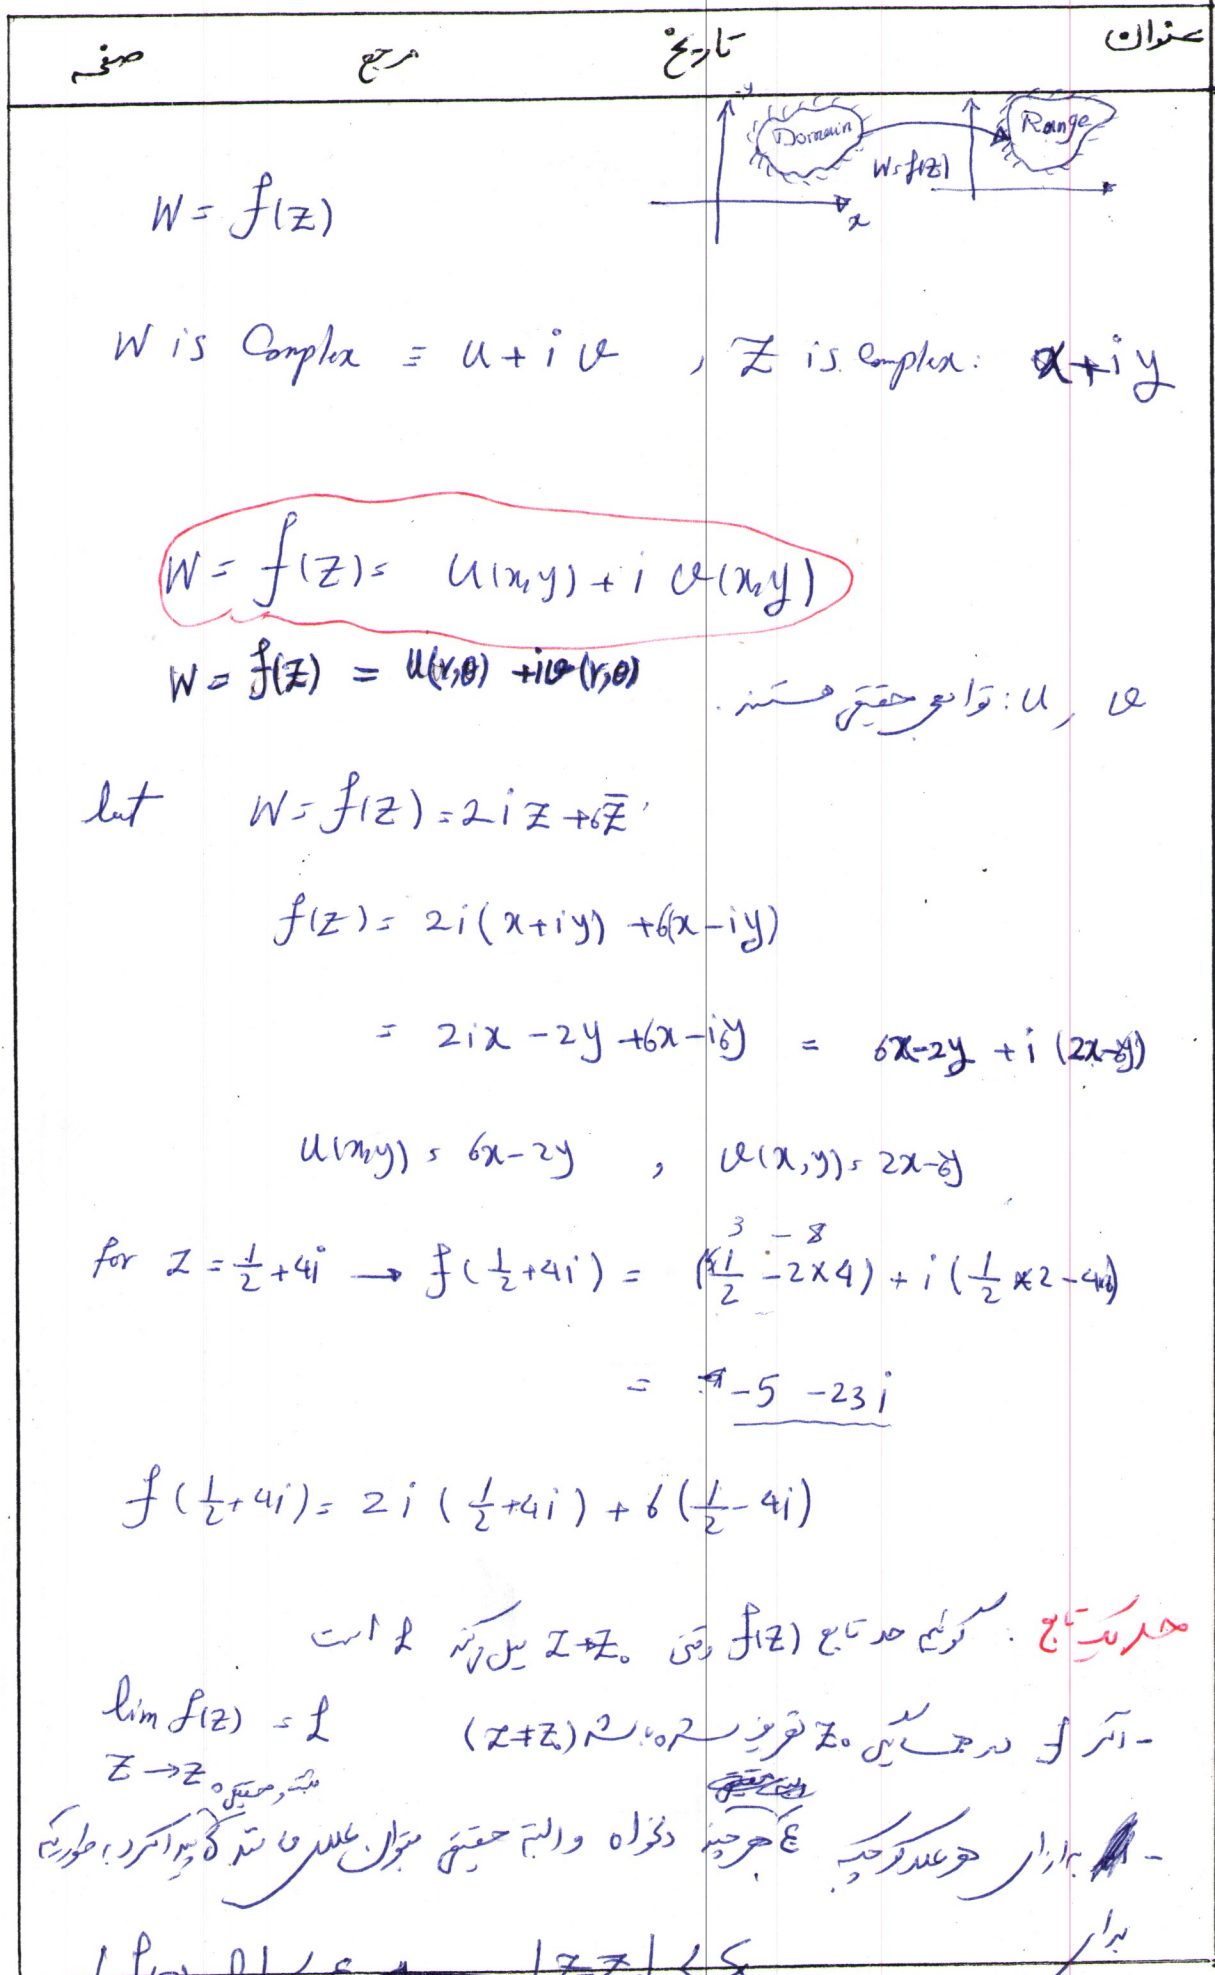 عنوان تاریخ مرجع صفحه
y Domain Range
W=f(z)
x
W = f(z)
W is Complex = u + i v , Z is Complex: x + i y
W = f(z) = u(x,y) + i v(x,y)
W = f(z) = u(r,θ) + i v(r,θ)
u , v : توابع حقیقی هستند.
let W = f(z) = 2 i z + 6 z̄
f(z) = 2 i (x + i y) + 6(x - i y)
= 2 i x - 2 y + 6x - i6y = 6x - 2y + i (2x - 6y)
u(x,y) = 6x - 2y , v(x,y) = 2x - 6y
3 - 8
for Z = 1/2 + 4i → f( 1/2 + 4i ) = (6×1/2 - 2×4) + i ( 1/2 × 2 - 4×6)
= -5 -23 i
f ( 1/2 + 4i ) = 2 i ( 1/2 + 4i ) + 6 ( 1/2 - 4i )
حد یک تابع . گوئیم حد تابع f(z) وقتی Z→Z₀ میل کند L است
- اگر f در همسایگی Z₀ تعریف شده باشد (Z≠Z₀) lim f(z) = L
Z → Z₀
مثبت و حقیقی
- به ازای هر عدد کوچک ε هر چند دلخواه و البته حقیقی بتوان عددی مانند δ پیدا کرد بطوریکه
برای